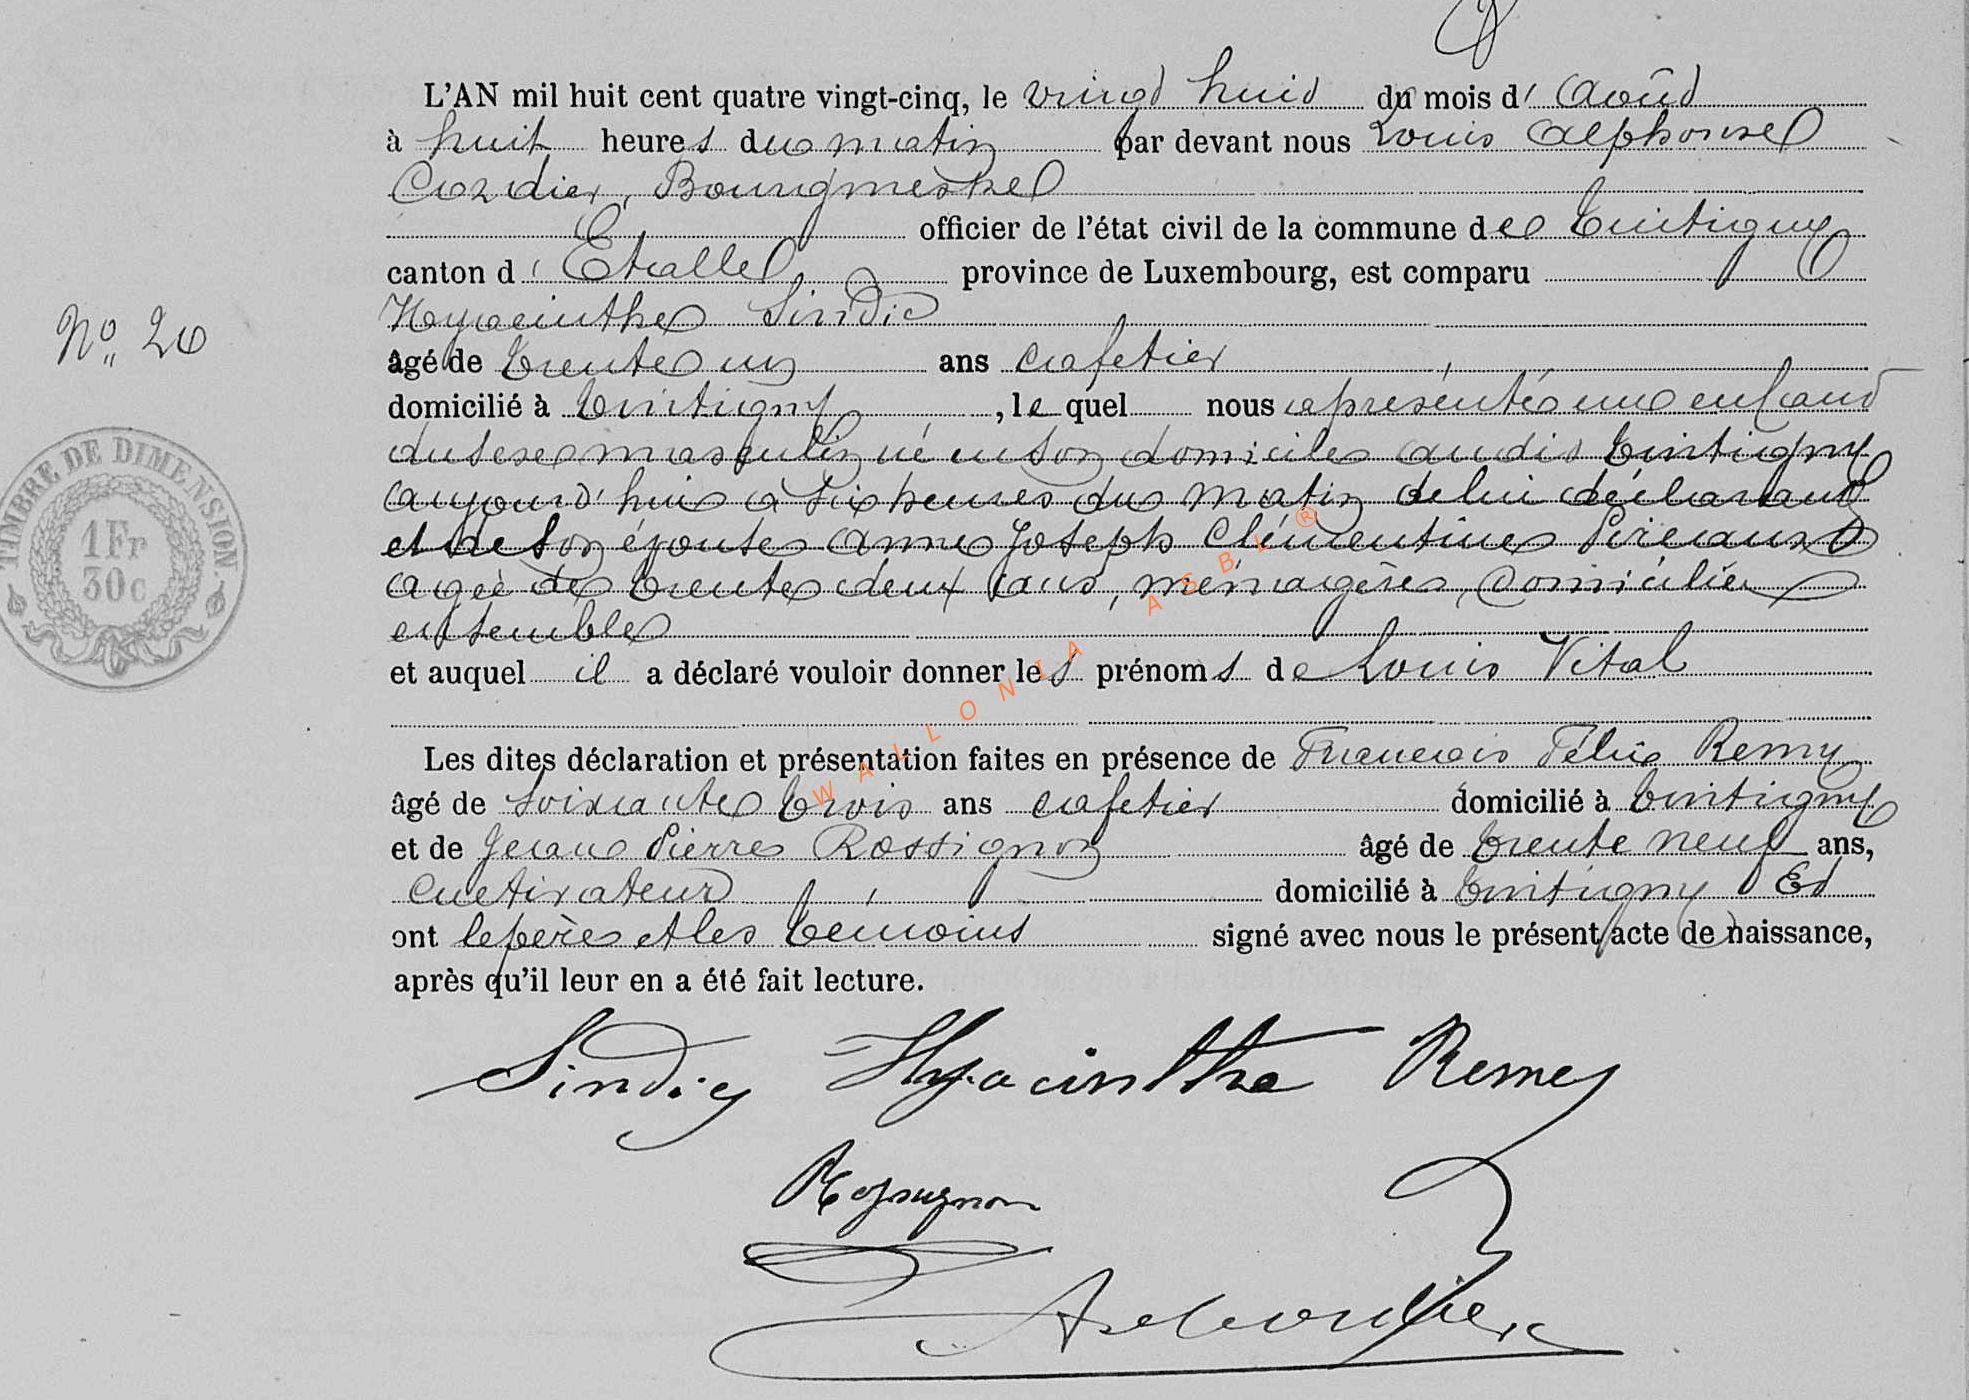 L'AN mil huit cent quatre vingt-cinq, le vingt huit du mois d' Août
à huit heures du matin par devant nous Louis Alphonse
Cordier, Bourgmestre
officier de l'état civil de la commune de Tintigny
canton d' Etalle province de Luxembourg, est comparu
Hyacinthe Sindic
N° 20
âgé de trente un ans cafetier
domicilié à Tintigny, lequel nous a présenté un enfant
du sexe masculin né en son domicile audit Tintigny
aujourd'hui à six heures du matin de lui déclarant
et de son épouse Anne Joseph Clémentine
agée de trente deux ans, ménagère, domiciliés
ensemble
et auquel il a déclaré vouloir donner les prénoms de Louis Vital
Les dites déclaration et présentation faites en présence de François Félix Remy
âgé de soixante trois ans cafetier domicilié à Tintigny
et de Jean Pierre Rossignon âgé de trente neuf ans,
cultivateur domicilié à Tintigny Et
ont le père et les témoins signé avec nous le présent acte de naissance,
après qu'il leur en a été fait lecture.
Sindic Hyacinthe Remy
Rossignon
TIMBRE DE DIMENSION
1 Fr
30c
WALLONIA ASBL ®